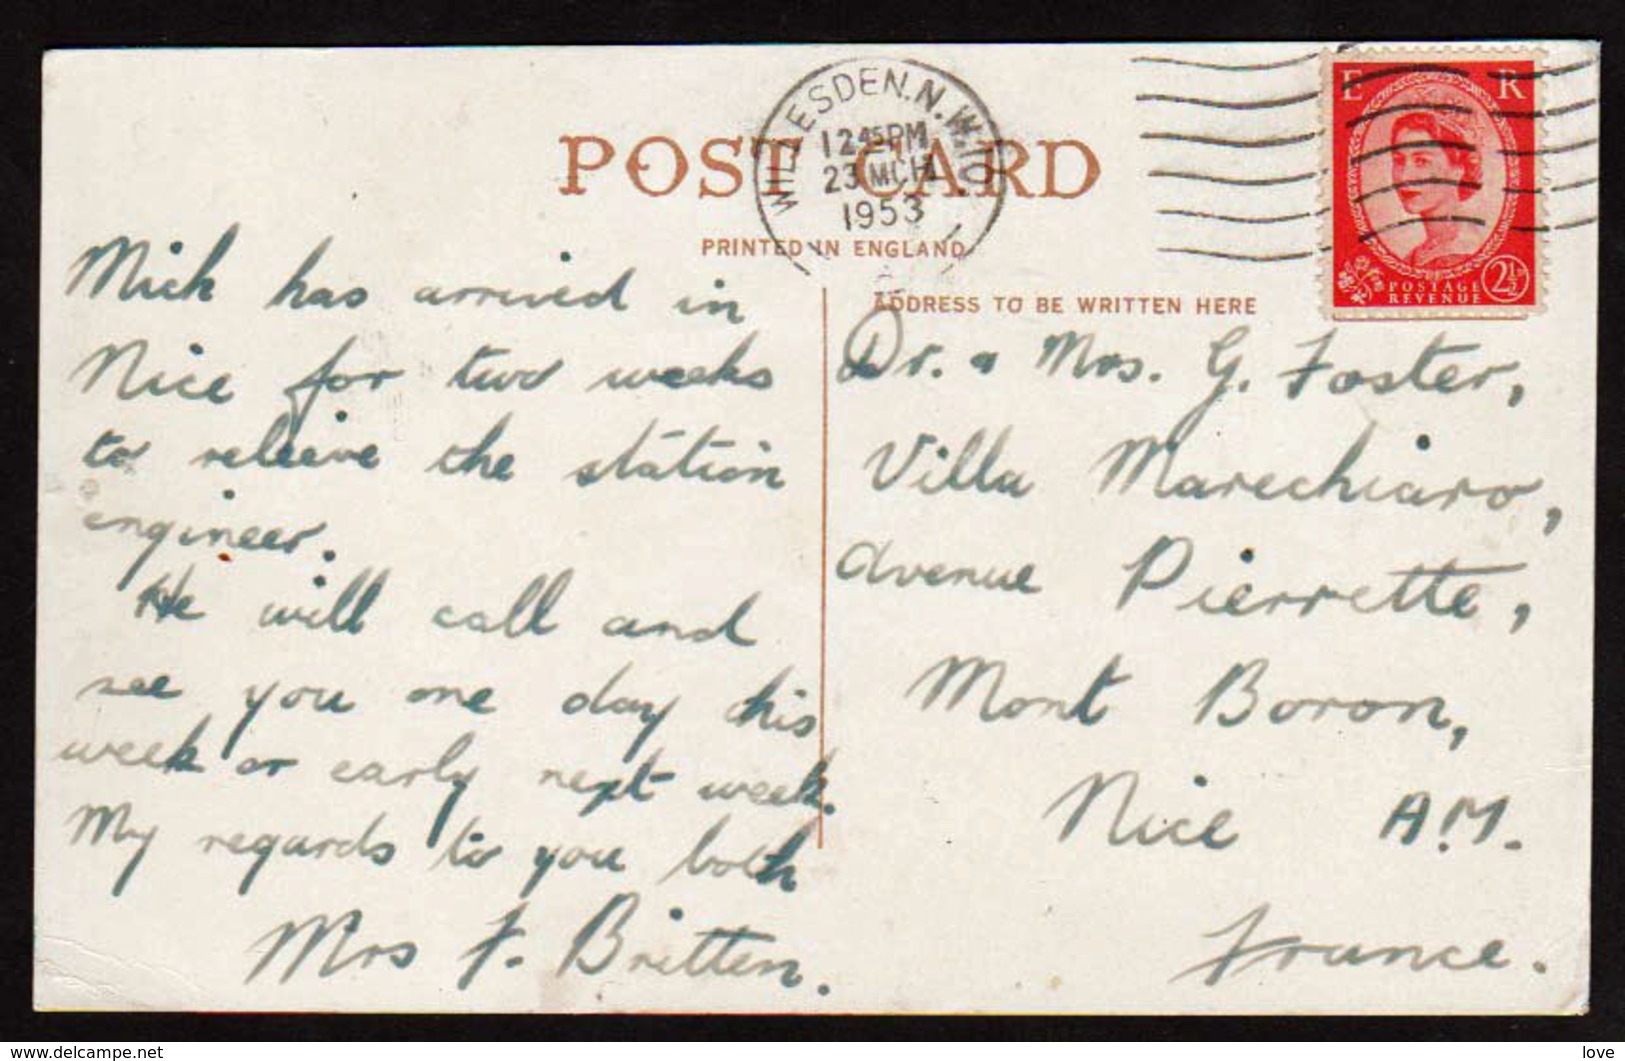 POST CARD
PRINTED IN ENGLAND
ADDRESS TO BE WRITTEN HERE
WILLESDEN. N.W.10.
12 45 PM
23 MCH
1953
E R
POSTAGE
REVENUE
2½
Mick has arrived in
Nice for two weeks
to releive the station
engineer.
He will call and
see you one day this
week or early next week.
My regards to you both
Mrs F. Britten.
Dr. & Mrs. G. Foster,
Villa Marechiaro,
Avenue Pierrette,
Mont Boron,
Nice A.M.
France.
love
www.delcampe.net